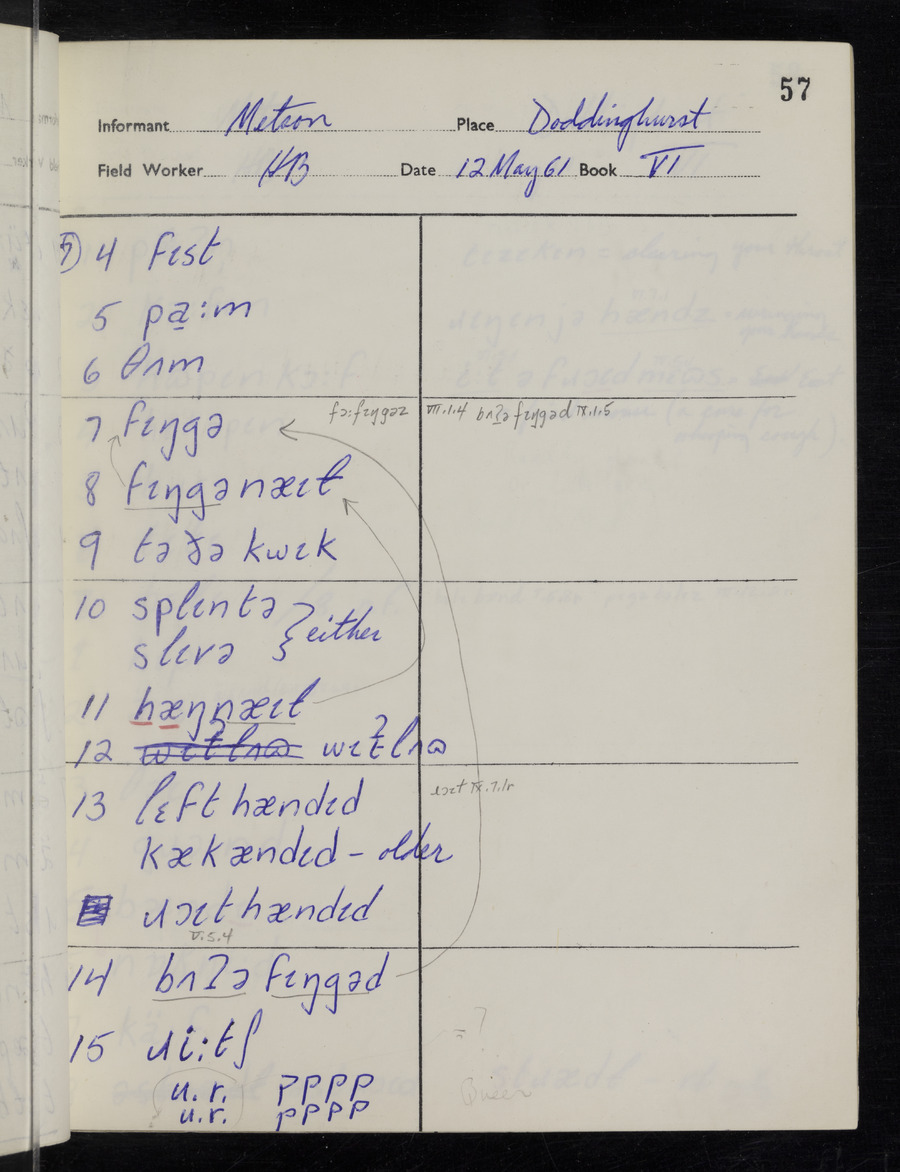 57
Informant Metson Place Doddinghurst
Field Worker HB Date 12 May 61 Book VI
7) 4 fɪst
5 pɑ̱:m
6 θʌm
7 fɪŋgə fɔ: fɪŋgəz VII.1.4 bʌʔə fɪŋgəd IX.1.5
8 fɪŋgənæɪɫ
9 tə ðə kwɪk
10 splɪntə
slɪvə } either
11 hæŋnæɪɫ
12 wɪʔɫʌɷ
13 lɛft hændɪd ɹɔɪt IX.7.1r
kækændɪd – older
ɹɔɪt hændɪd
V.5.4
14 bʌʔə fɪŋgəd
15 ɹi:tʃ
= ?
u.r. PPPP
u.r. PPPP
Queer